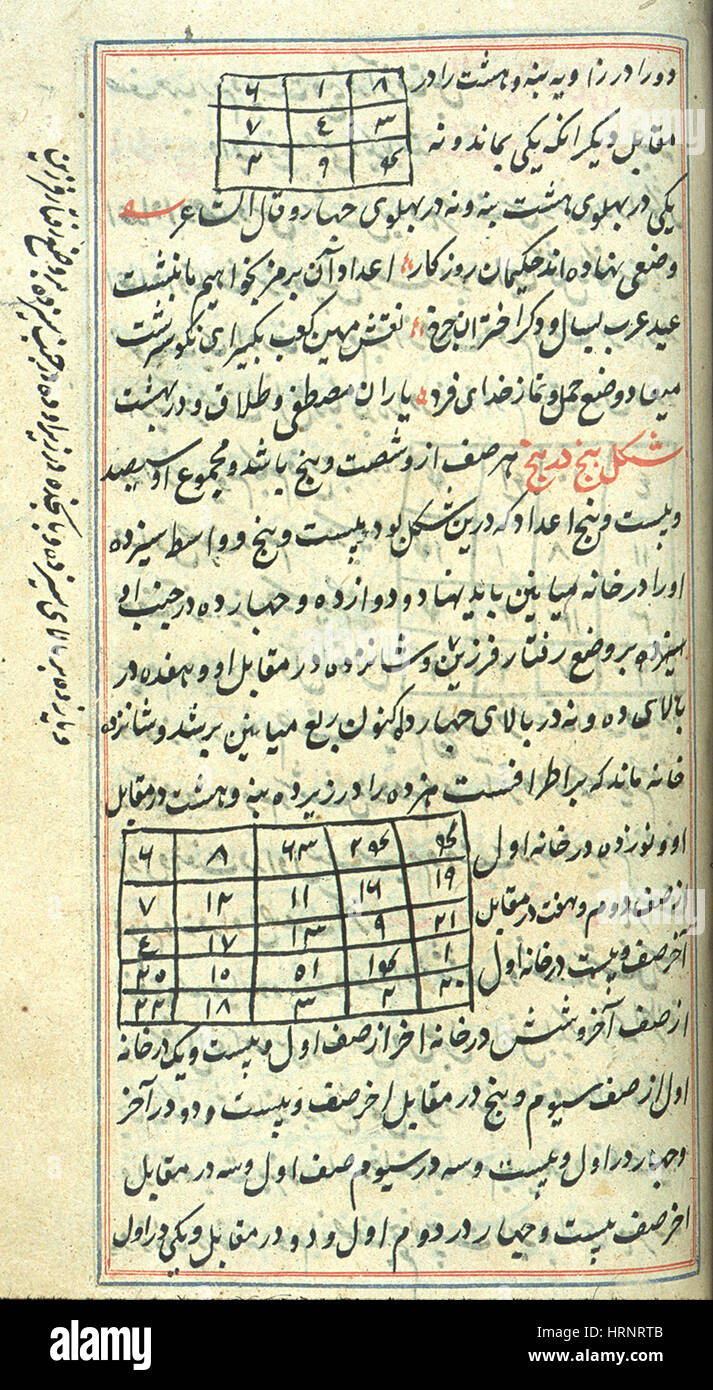 دو را در زاویه بنه و هشت را در
٨ ١ ٦
٣ ٤ ٧
۴ ٩ ٣
مقابل دیگر انکه یکی بماند و نه
یکی در بهلوی هشت بنه و نه در بهلوی جهار و قال الشاعر
وضعی نهاده اند حکیمان روزکار اعداد آن برمز بخواهیم ما نبشت
عید عرب لیال و دکر اختران جرخ نقش مهین کعب بکیر ای نکو سرشت
میعاد وضع حمل و نماز خدای فرد یاران مصطفی و طلاق و در بهشت
شکل بنج در بنج هر صف ازو شصت و بنج باشد و مجموع او سیصد
و بیست و بنج اعداد که درین شکل بود بیست و بنج و واسط سیزده
او را در خانه میابین باید نهاد و دوازده و جهارده در جنب او
سیزده بر وضع رفتار فرزین و شانزده در مقابل او و هفده در
بالای ده و نه در بالای جهارده اکنون ربع میابین بر شد و شانزده
خانه ماند که بر اطرافست هژده را در زیر ده بنه و هشت در مقابل
او و نوزده در خانه اول
از صف دوم و هفت در مقابل
آخر صف و بیست در خانه اول
۴ ٢۴ ٦٣ ٨ ٦
١٩ ١٦ ١١ ١٢ ٧
٢١ ٩ ١٣ ١٧ ٤
١ ١۴ ٥١ ١٥ ٢٥
٢٠ ٢ ٣ ١٨ ٢٢
از صف آخر و شش در خانه اخر از صف اول و بیست و یک در خانه
اول از صف سیوم و بنج در مقابل اخر صف و بیست و دو در آخر
و جهار در اول و بیست و سه در سیوم صف اول و سه در مقابل
اخر صف بیست و جهار در دوم اول و دو در مقابل و یکی در اول
alamy
Image ID: HRNRTB
www.alamy.com